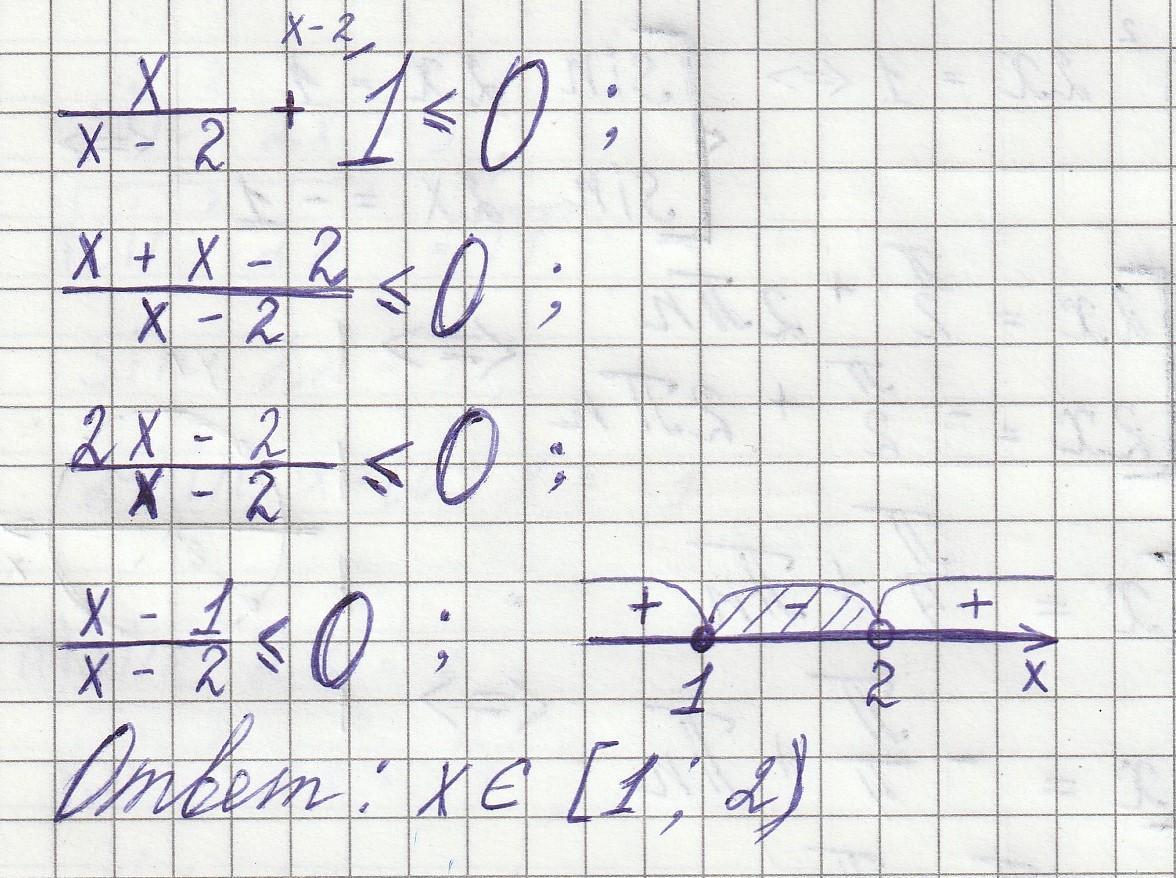 x/(x - 2) + 1 (x-2) ≤ 0 ;
(x + x - 2)/(x - 2) ≤ 0 ;
(2x - 2)/(x - 2) ≤ 0 ;
(x - 1)/(x - 2) ≤ 0 ;
+ - +
1 2 x
Ответ: x ∈ [1; 2)